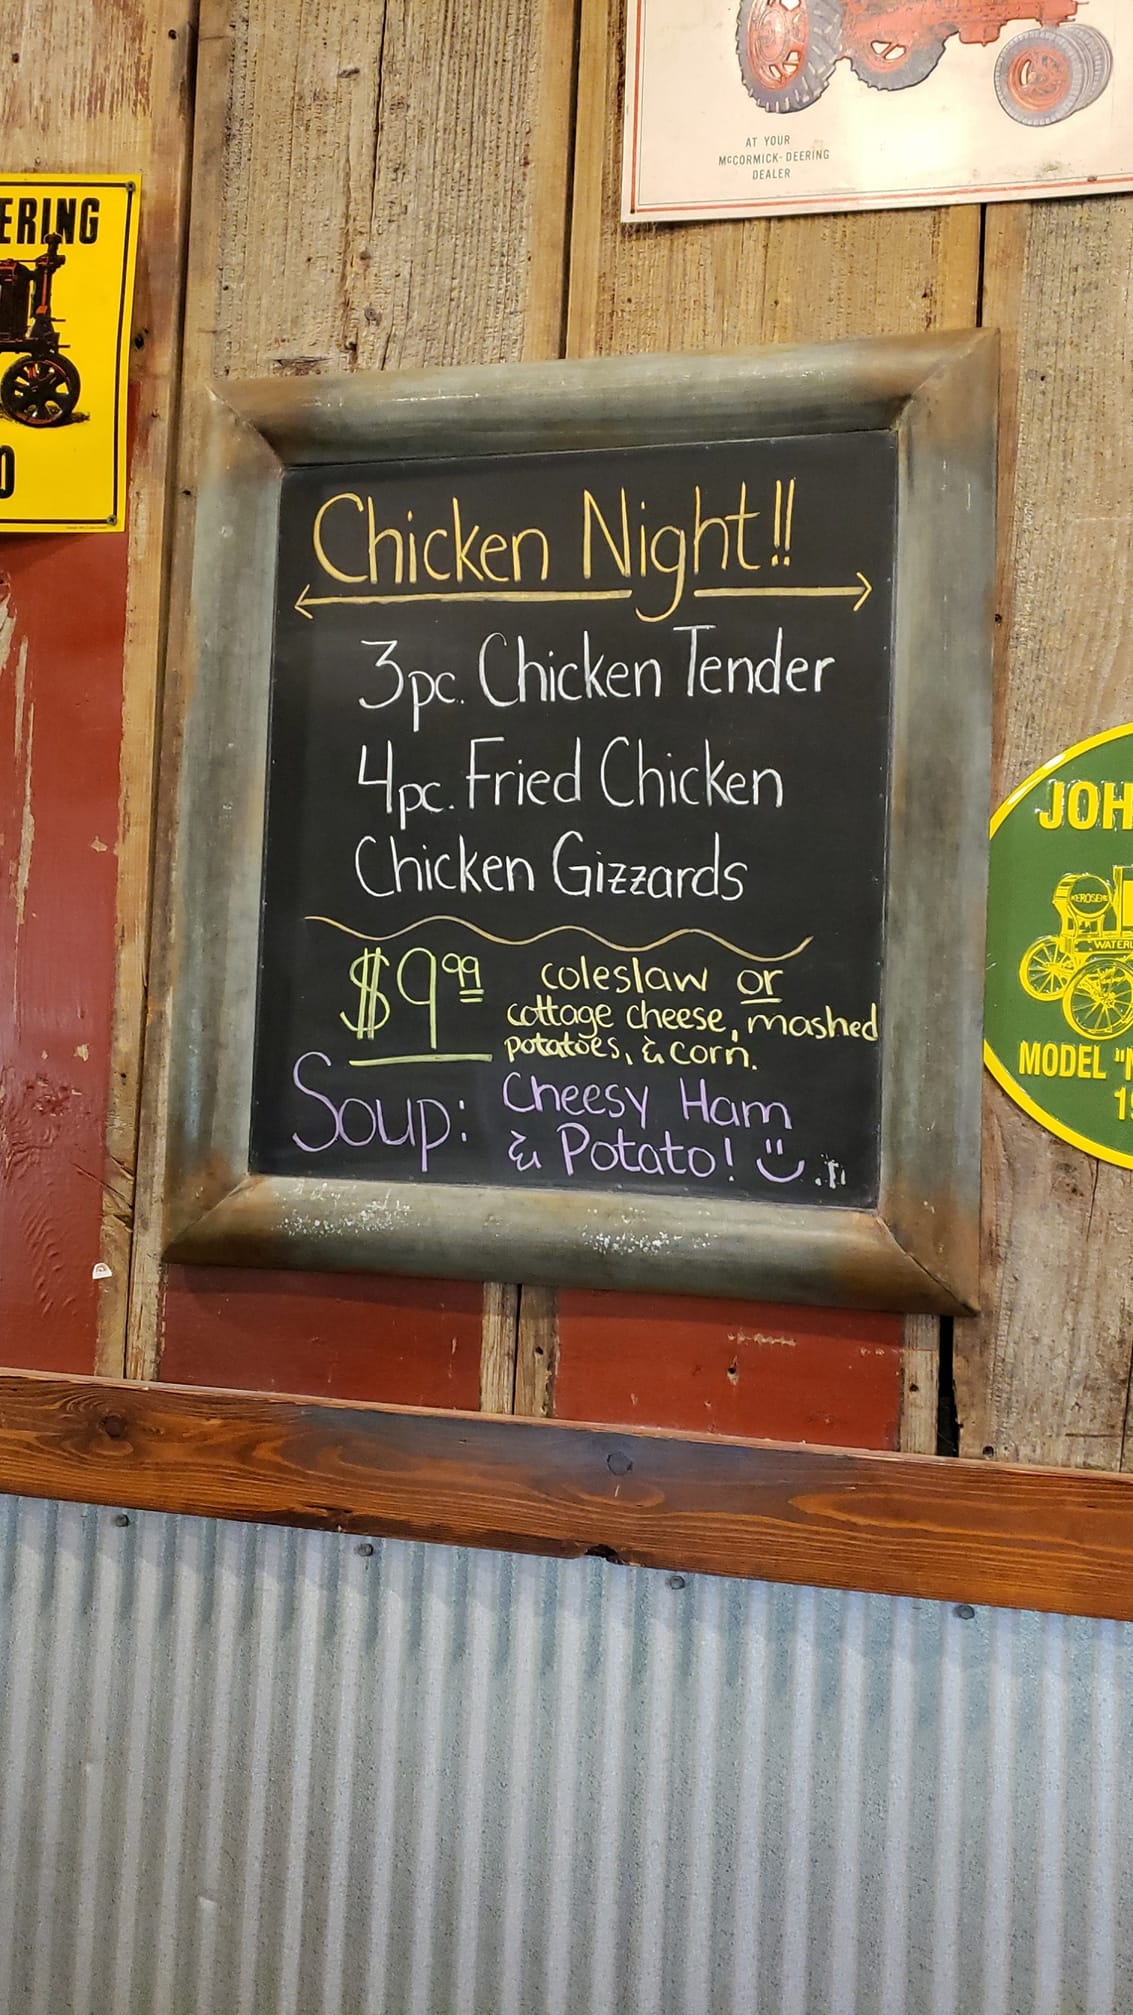 AT YOUR
McCORMICK-DEERING
DEALER
ERING
Chicken Night!!
3pc. Chicken Tender
4pc. Fried Chicken
Chicken Gizzards
$9.99 coleslaw or
cottage cheese, mashed
potatoes, & corn.
Soup: Cheesy Ham
& Potato!
JOH
KEROSENE
WATERL
MODEL "N
19